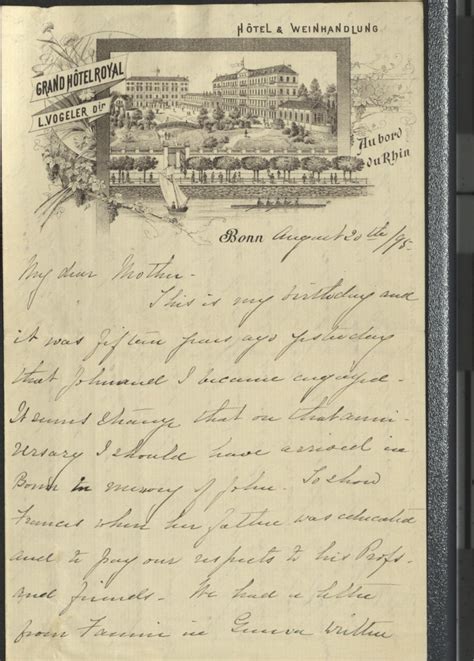 HÔTEL & WEINHANDLUNG
GRAND HÔTEL ROYAL
L. VOGELER Dir
Au bord
du Rhin
Bonn August 20th/95.
My dear Mother -
This is my birthday and
it was fifteen years ago yesterday
that John and I became engaged -
It seems strange that on that anni-
versary I should have arrived in
Bonn in memory of John. To show
Frances where her father was educated
and to pay our respects to his Profs-
and friends - We had a letter
from Fannie in Geneva written